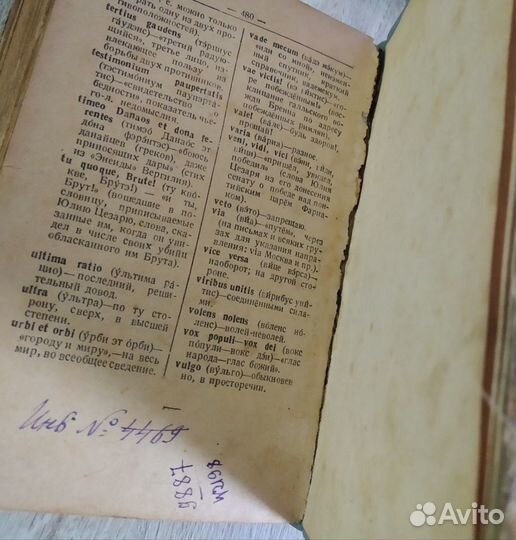 — 480 —
е. можно только
рать одну из двух про-
тивоположностей).
tertius gaudens (тэ́рциус
га́удэнс)—«третий радую-
щийся», третье лицо, из-
влекающее пользу из
борьбы двух противников.
testimonium paupertatis
тис)—«свидетельство о
бедности», показатель че-
го-л. недомыслия.
timeo Danaos et dona fe-
rentes (ти́мэо Да́наос эт
до́на фэрэ́нтэс)—«боюсь
данайцев (греков), даже
приносящих дары» (стих
из «Энеиды» Вергилия).
tu quoque, Brute! (ту кво́-
квэ, Бру́тэ!) — «и ты,
Брут!» (вошедшие в по-
словицу, приписываемые
Юлию Цезарю, слова, ска-
занные им, когда он уви-
дел в числе своих убийц
обласканного им Брута).
ultima ratio (у́льтима ра́-
цио)—последний, реши-
тельный довод.
ultra (у́льтра)—по ту сто-
рону, сверх, в высшей
степени.
urbi et orbi (у́рби эт о́рби)—
«городу и миру»,—на весь
мир, во всеобщее сведение.
vade mecum (ва́дэ мэ́кум)—
справочник, путеводитель.
vae victis!
vale! (ва́ле)—будь здоров!,
прощай!
varia (ва́риа)—разное.
veni, vidi, vici
победил»—слова Юлия
Цезаря из его донесения
сенату о победе над пон-
тийским царём Фарна-
ком).
veto (вэ́то)—запрещаю.
via (ви́а)—«путём», через
(на письмах и всяких гру-
зах для указания направ-
ления: via Москва и пр.).
vice versa (ви́це вэ́рса)—
наоборот; на другой сто-
роне.
viribus unitis (ви́рибус уни́-
тис)—соединёнными сила-
ми.
volens nolens (во́ленс но́-
ленс)—волей-неволей.
vox populi—vox dei (вокс
по́пули—вокс дэ́и)—«глас
народа—глас божий».
vulgo (ву́льго)—обыкновен-
но, в просторечии.
Инв № 6944
9887